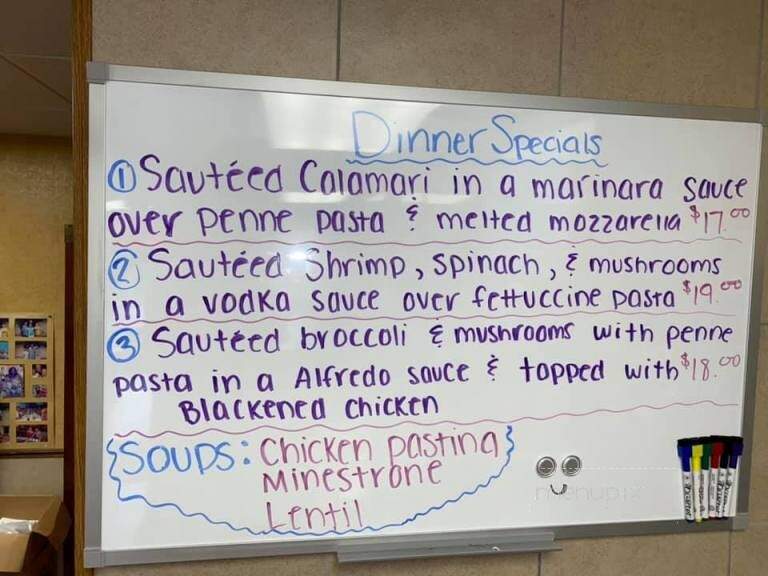 Dinner Specials
① Sautéed Calamari in a marinara sauce
over penne pasta & melted mozzarella $17.00
② Sautéed Shrimp, spinach, & mushrooms
in a vodka sauce over fettuccine pasta $19.00
③ Sautéed broccoli & mushrooms with penne
pasta in a Alfredo sauce & topped with $18.00
Blackened chicken
{SOUPS: Chicken pastina}
Minestrone
Lentil
menupix